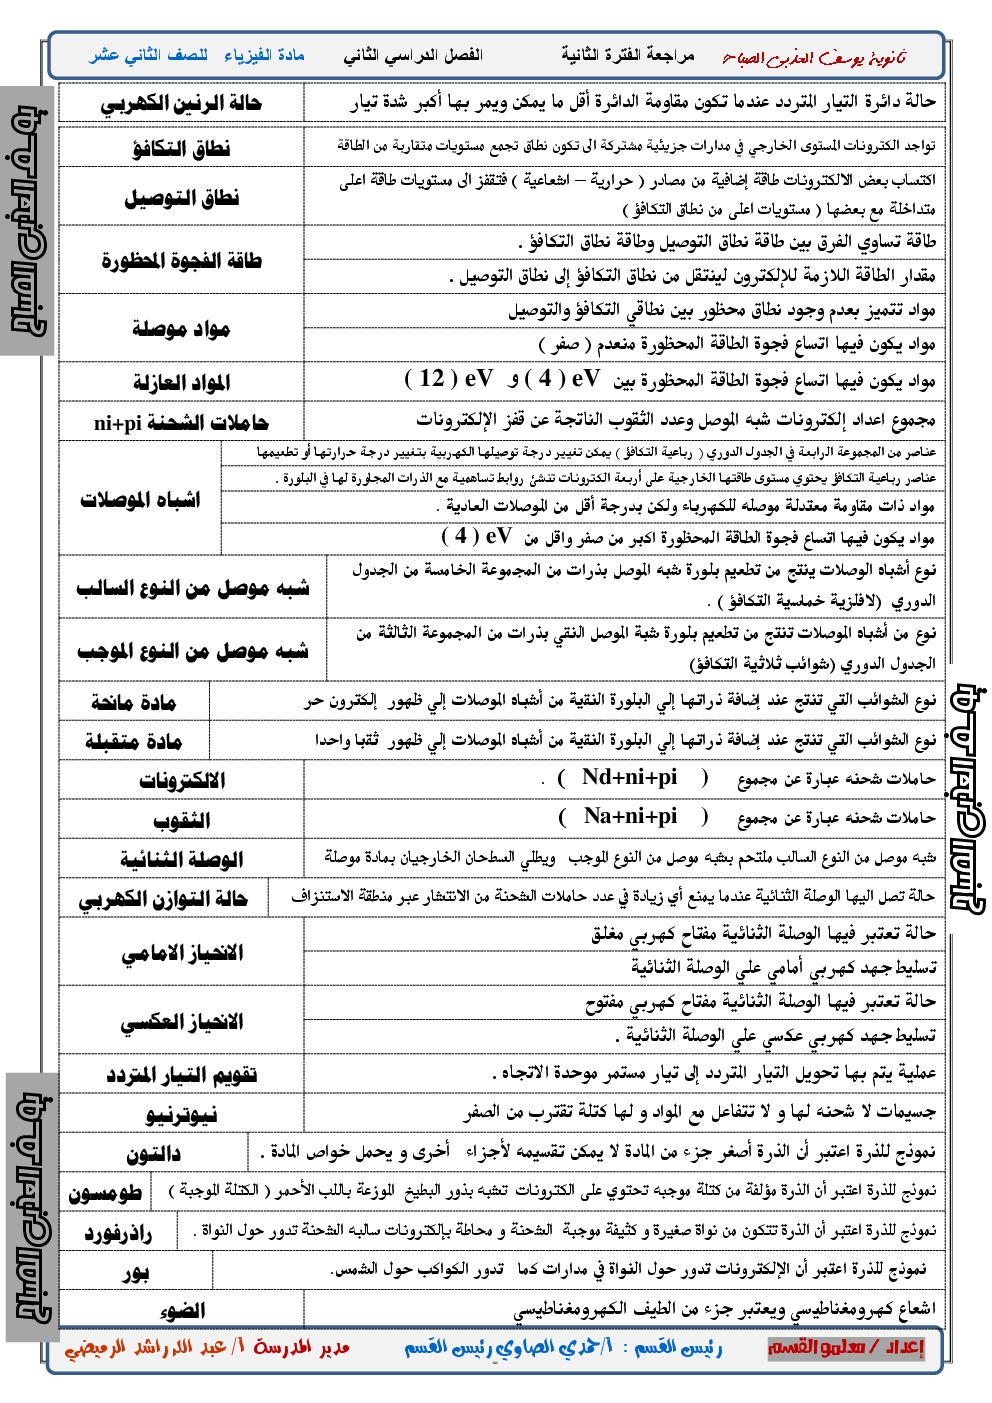 ثانوية يوسف العذبي الصباح مراجعة الفترة الثانية الفصل الدراسي الثاني مادة الفيزياء للصف الثاني عشر
حالة دائرة التيار المتردد عندما تكون مقاومة الدائرة أقل ما يمكن ويمر بها أكبر شدة تيار
حالة الرنين الكهربي
تواجد الكترونات المستوى الخارجي في مدارات جزيئية مشتركة الى تكون نطاق تجمع مستويات متقاربة من الطاقة
نطاق التكافؤ
اكتساب بعض الالكترونات طاقة إضافية من مصادر ( حرارية – اشعاعية ) فتقفز الى مستويات طاقة اعلى
متداخلة مع بعضها ( مستويات اعلى من نطاق التكافؤ )
نطاق التوصيل
طاقة تساوي الفرق بين طاقة نطاق التوصيل وطاقة نطاق التكافؤ .
مقدار الطاقة اللازمة للإلكترون لينتقل من نطاق التكافؤ إلى نطاق التوصيل .
طاقة الفجوة المحظورة
مواد تتميز بعدم وجود نطاق محظور بين نطاقي التكافؤ والتوصيل
مواد يكون فيها اتساع فجوة الطاقة المحظورة منعدم ( صفر )
مواد موصلة
مواد يكون فيها اتساع فجوة الطاقة المحظورة بين eV ( 4 ) و eV ( 12 )
المواد العازلة
مجموع اعداد إلكترونات شبه الموصل وعدد الثقوب الناتجة عن قفز الإلكترونات
حاملات الشحنة ni+pi
عناصر من المجموعة الرابعة في الجدول الدوري ( رباعية التكافؤ ) يمكن تغيير درجة توصيلها الكهربية بتغيير درجة حرارتها أو تطعيمها
عناصر رباعية التكافؤ يحتوي مستوى طاقتها الخارجية على أربعة الكترونات تنشئ روابط تساهمية مع الذرات المجاورة لها في البلورة .
مواد ذات مقاومة معتدلة موصله للكهرباء ولكن بدرجة أقل من الموصلات العادية .
مواد يكون فيها اتساع فجوة الطاقة المحظورة اكبر من صفر واقل من eV ( 4 )
اشباه الموصلات
نوع أشباه الوصلات ينتج من تطعيم بلورة شبه الموصل بذرات من المجموعة الخامسة من الجدول
الدوري (لافلزية خماسية التكافؤ ) .
شبه موصل من النوع السالب
نوع من أشباه الموصلات تنتج من تطعيم بلورة شبة الموصل النقي بذرات من المجموعة الثالثة من
الجدول الدوري (شوائب ثلاثية التكافؤ)
شبه موصل من النوع الموجب
نوع الشوائب التي تنتج عند إضافة ذراتها إلي البلورة النقية من أشباه الموصلات إلي ظهور إلكترون حر
مادة مانحة
نوع الشوائب التي تنتج عند إضافة ذراتها إلي البلورة النقية من أشباه الموصلات إلي ظهور ثقبا واحدا
مادة متقبلة
حاملات شحنه عبارة عن مجموع ( Nd+ni+pi ) .
الالكترونات
حاملات شحنه عبارة عن مجموع ( Na+ni+pi )
الثقوب
شبه موصل من النوع السالب ملتحم بشبه موصل من النوع الموجب ويطلي السطحان الخارجيان بمادة موصلة
الوصلة الثنائية
حالة تصل اليها الوصلة الثنائية عندما يمنع أي زيادة في عدد حاملات الشحنة من الانتشار عبر منطقة الاستنزاف
حالة التوازن الكهربي
حالة تعتبر فيها الوصلة الثنائية مفتاح كهربي مغلق
تسليط جهد كهربي أمامي علي الوصلة الثنائية
الانحياز الامامي
حالة تعتبر فيها الوصلة الثنائية مفتاح كهربي مفتوح
تسليط جهد كهربي عكسي علي الوصلة الثنائية .
الانحياز العكسي
عملية يتم بها تحويل التيار المتردد إلى تيار مستمر موحدة الاتجاه .
تقويم التيار المتردد
جسيمات لا شحنه لها و لا تتفاعل مع المواد و لها كتلة تقترب من الصفر
نيوترنيو
نموذج للذرة اعتبر أن الذرة أصغر جزء من المادة لا يمكن تقسيمه لأجزاء أخرى و يحمل خواص المادة .
دالتون
نموذج للذرة اعتبر أن الذرة مؤلفة من كتلة موجبه تحتوي على الكترونات تشبه بذور البطيخ الموزعة باللب الأحمر ( الكتلة الموجبة )
طومسون
نموذج للذرة اعتبر أن الذرة تتكون من نواة صغيرة و كثيفة موجبة الشحنة و محاطة بإلكترونات سالبه الشحنة تدور حول النواة .
راذرفورد
نموذج للذرة اعتبر أن الإلكترونات تدور حول النواة في مدارات كما تدور الكواكب حول الشمس.
بور
اشعاع كهرومغناطيسي ويعتبر جزء من الطيف الكهرومغناطيسي
الضوء
إعداد / معلمو القسم رئيس القسم : أ/حمدي الصاوي رئيس القسم مدير المدرسة أ/ عبد الله راشد الرميضي